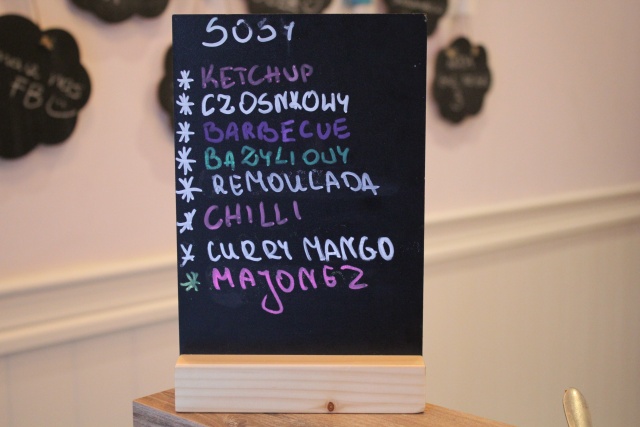 SOSY
* KETCHUP
* CZOSNKOWY
* BARBECUE
* BAZYLIOWY
* REMOULADA
* CHILLI
* CURRY MANGO
* MAJONEZ
FB